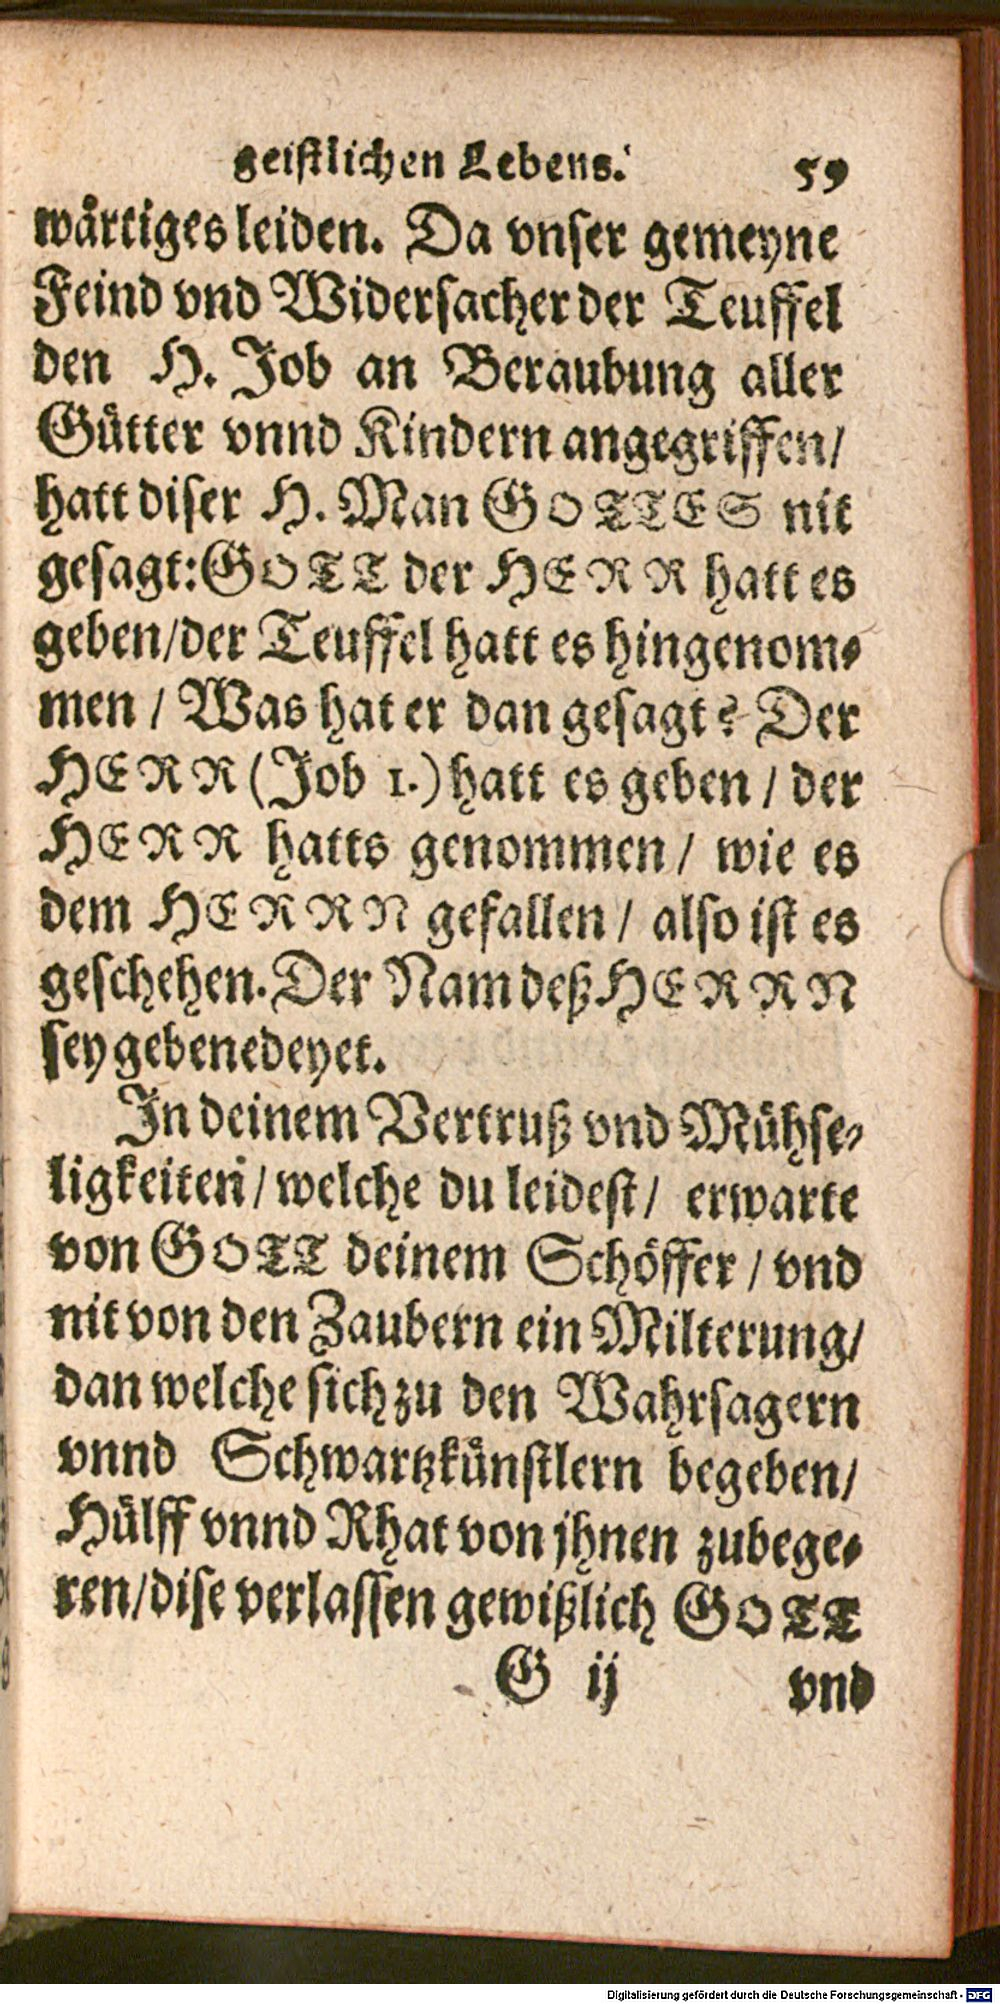 geistlichen Lebens. 59
wårtiges leiden. Da vnser gemeyne
Feind vnd Widersacher der Teuffel
den H. Job an Beraubung aller
Gůtter vnnd Kindern angegriffen/
hatt diser H. Man GOTTES nit
gesagt: GOTT der HERR hatt es
geben/der Teuffel hatt es hingenom-
men / Was hat er dan gesagt? Der
HERR (Job 1.) hatt es geben / der
HERR hatts genommen / wie es
dem HERRN gefallen / also ist es
geschehen. Der Nam deß HERRN
sey gebenedeyet.
In deinem Vertruß vnd Můhse-
ligkeiten / welche du leidest / erwarte
von GOTT deinem Schöffer / vnd
nit von den Zaubern ein Milterung/
dan welche sich zu den Wahrsagern
vnnd Schwartzkůnstlern begeben/
Hůlff vnnd Rhat von jhnen zubege-
ren/dise verlassen gewißlich GOTT
G ij vnd
Digitalisierung gefördert durch die Deutsche Forschungsgemeinschaft - DFG